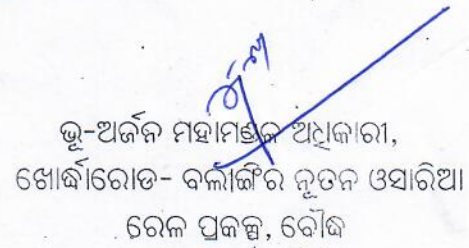 ଭୂ-ଅର୍ଜନ ମହାମଣ୍ଡଳ ଅଧିକାରୀ,
ଖୋର୍ଦ୍ଧାରୋଡ- ବଲାଙ୍ଗିର ନୂତନ ଓସାରିଆ
ରେଳ ପ୍ରକଳ୍ପ, ବୌଦ୍ଧ